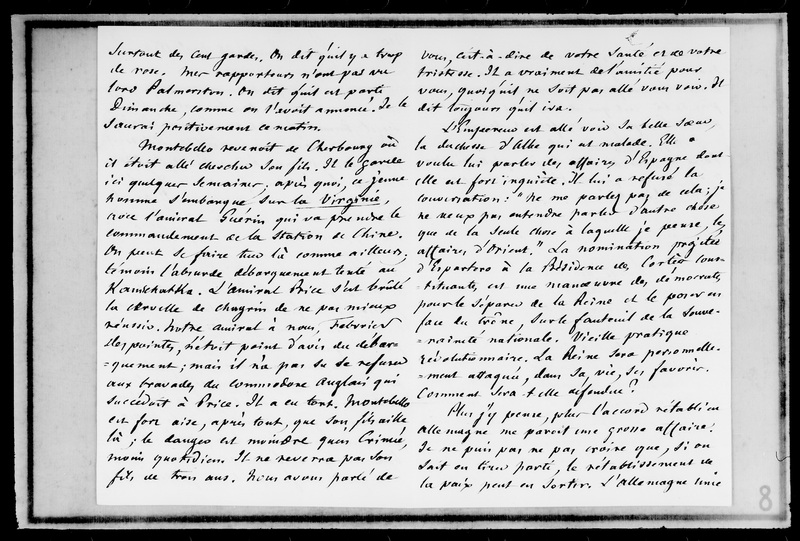 Surtout des cent gardes. On dit qu'il y a trop
de rose. Mes rapporteurs n'ont pas vu
lord Palmerston. On dit qu'il est parti
Dimanche, comme on l'avoit annoncé. Je le
saurai positivement ce matin.
Montebello revenoit de Cherbourg où
il étoit allé chercher son fils. Il le garde
ici quelques semaines, après quoi, ce jeune
homme s'embarque sur la Virginie,
avec l'amiral Guérin qui va prendre le
commandement de la station de Chine.
On peut se faire tuer là comme ailleurs,
témoin l'absurde débarquement tenté au
Kamschatka. L'amiral Price s'est brûlé
la cervelle de chagrin de ne pas mieux
réussir. Notre amiral à nous, Febvrier
Despointes, n'étoit point d'avis du débar-
=quement ; mais il n'a pas su se refuser
aux bravades du commodore anglais qui
succédoit à Price. Il a eu tort. Montebello
est fort aise, après tout, que son fils aille
là ; le danger est moindre qu'en Crimée,
moins quotidien. Il ne reverra pas son
fils de trois ans. Nous avons parlé de
vous, c'est-à-dire de votre santé et de votre
tristesse. Il a vraiment de l'amitié pour
vous, quoiqu'il ne soit pas allé vous voir. Il
dit toujours qu'il ira.
L'Empereur est allé voir sa belle sœur,
la duchesse d'Albe qui est malade. Elle a
voulu lui parler des affaires d'Espagne dont
elle est fort inquiète. Il lui a refusé la
conversation : "Ne me parlez pas de cela ; je
ne veux pas entendre parler d'autre chose
que de la seule chose à laquelle je pense, les
affaires d'Orient." La nomination projetée
d'Espartero à la Présidence des Cortès cons-
=tituantes, est une manœuvre des démocrates
pour le séparer de la Reine et le poser en
face du trône, sur le fauteuil de la Souve-
=raineté nationale. Vieille pratique
révolutionnaire. La Reine sera personnelle-
=ment attaquée, dans sa vie, ses favoris.
Comment sera-t-elle défendue ?
Plus j'y pense, plus l'accord rétabli en
Allemagne me paroit une grosse affaire.
Je ne puis pas ne pas croire que, si on
sait en tirer parti, le rétablissement de
la paix peut en sortir. L'Allemagne unie
8